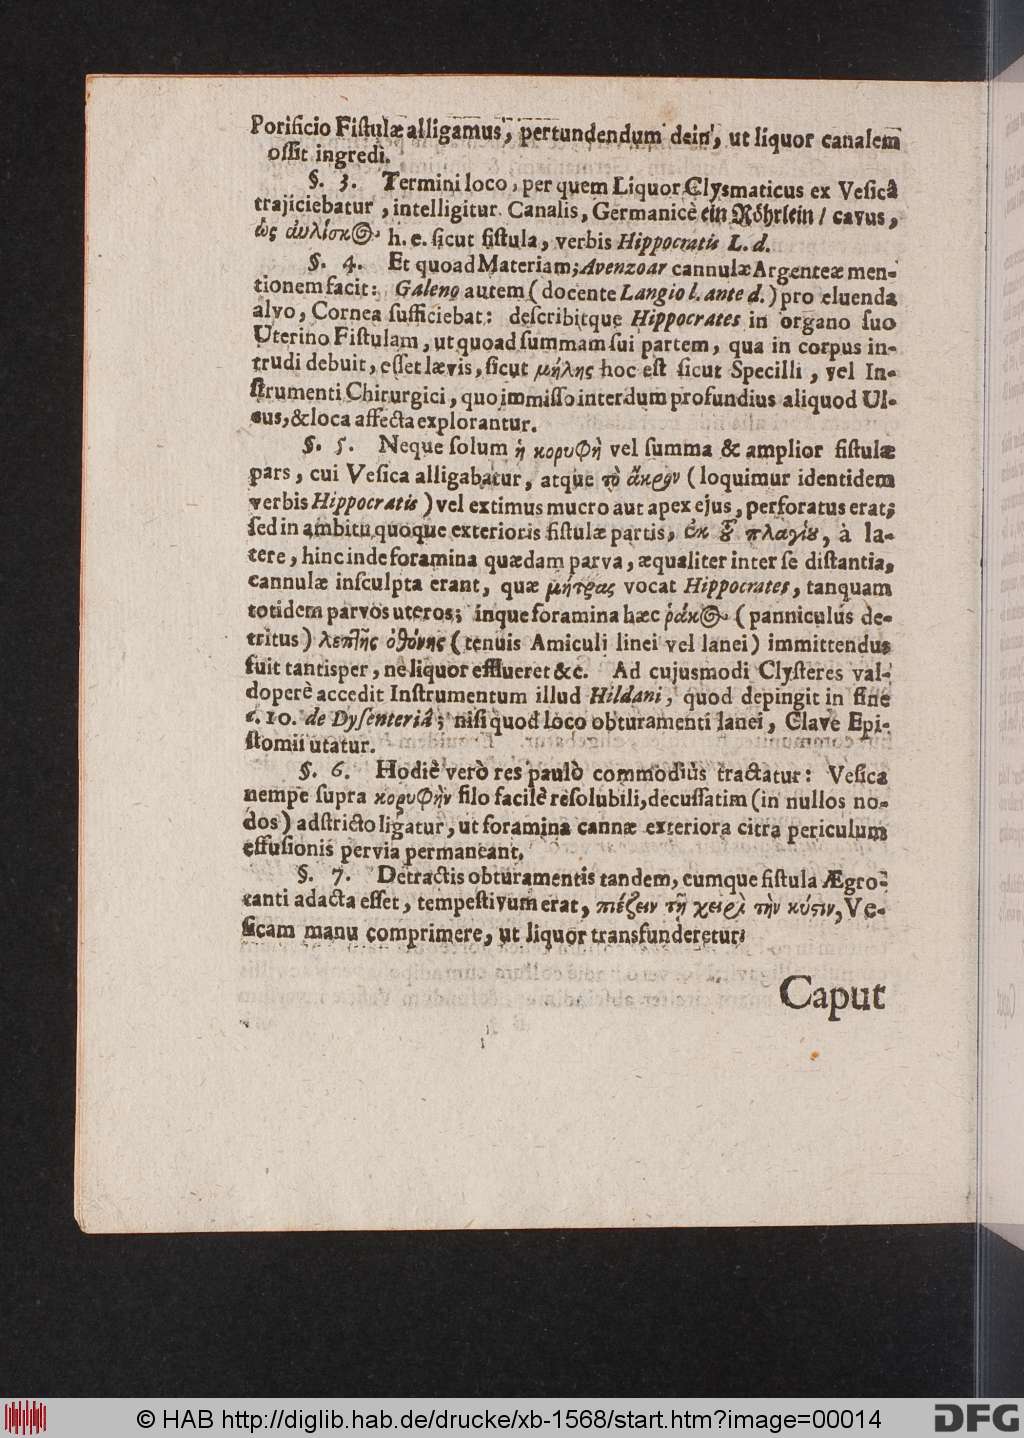 Porificio Fiſtulæ alligamus, pertundendum dein', ut liquor canalem
oſſit ingredi.
§. 3. Termini loco, per quem Liquor Clysmaticus ex Veſicâ
trajiciebatur, intelligitur Canalis, Germanicè ein Röhrlein / cavus,
ὡς αὐλίσκ☉, h. e. ſicut fiſtula, verbis Hippocratis L. d.
§. 4. Et quoad Materiam; Avenzoar cannulæ Argenteæ men-
tionem facit: Galeno autem (docente Langio l. ante d.) pro eluenda
alvo, Cornea ſufficiebat: deſcribitque Hippocrates in organo ſuo
Uterino Fiſtulam, ut quoad ſummam ſui partem, qua in corpus in-
trudi debuit, eſſet lævis, ſicut μήλης hoc eſt ſicut Specilli, vel In-
ſtrumenti Chirurgici, quo immiſſo interdum profundius aliquod Ul-
cus, & loca affecta explorantur.
§. 5. Neque ſolum ἡ κορυφὴ vel ſumma & amplior fiſtulæ
pars, cui Veſica alligabatur, atque τὸ ἄκρον (loquimur identidem
verbis Hippocratis) vel extimus mucro aut apex ejus, perforatus erat;
ſed in ambitu quoque exterioris fiſtulæ partis, ἐκ τοῦ πλαγίου, à la-
tere, hinc inde foramina quædam parva, æqualiter inter ſe diſtantia,
cannulæ inſculpta erant, quæ μήτρας vocat Hippocrates, tanquam
totidem parvos uteros; inque foramina hæc ῥάκ☉ (panniculus de-
tritus) λεπτῆς ὀθόνης (tenuis Amiculi linei vel lanei) immittendus
fuit tantisper, ne liquor efflueret &c. Ad cujusmodi Clyſteres val-
doperè accedit Inſtrumentum illud Hildani, quod depingit in fine
c. 10. de Dyſenteriâ; niſi quod loco obturamenti lanei, Clave Epi-
ſtomii utatur.
§. 6. Hodiè verò res paulò commodiùs tractatur: Veſica
nempe ſupra κορυφὴν filo facilè reſolubili, decuſſatim (in nullos no-
dos) adſtricto ligatur, ut foramina cannæ exteriora citra periculum
effuſionis pervia permaneant.
§. 7. Detractis obturamentis tandem, cumque fiſtula Ægro-
tanti adacta eſſet, tempeſtivum erat, πιέζειν τῇ χειρὶ τὴν κύστιν, Ve-
ſicam manu comprimere, ut liquor transfunderetur.
Caput
© HAB http://diglib.hab.de/drucke/xb-1568/start.htm?image=00014
DFG